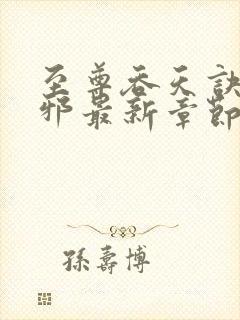 至尊吞天訣
邪最新章節
孫壽博